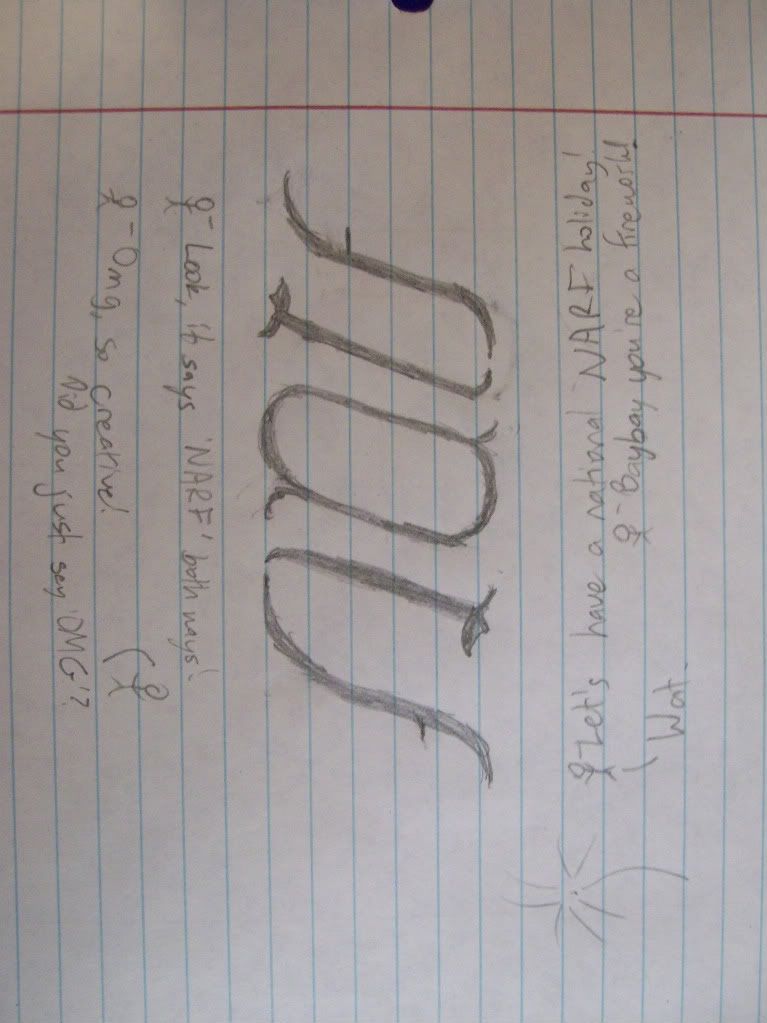 ♀- Look, it says 'NARF' both ways!
♀- Omg, so creative!
Did you just say 'OMG'?
NARF
Let's have a national NARF holiday!
♀- Baybay you're a firework!
Wat.